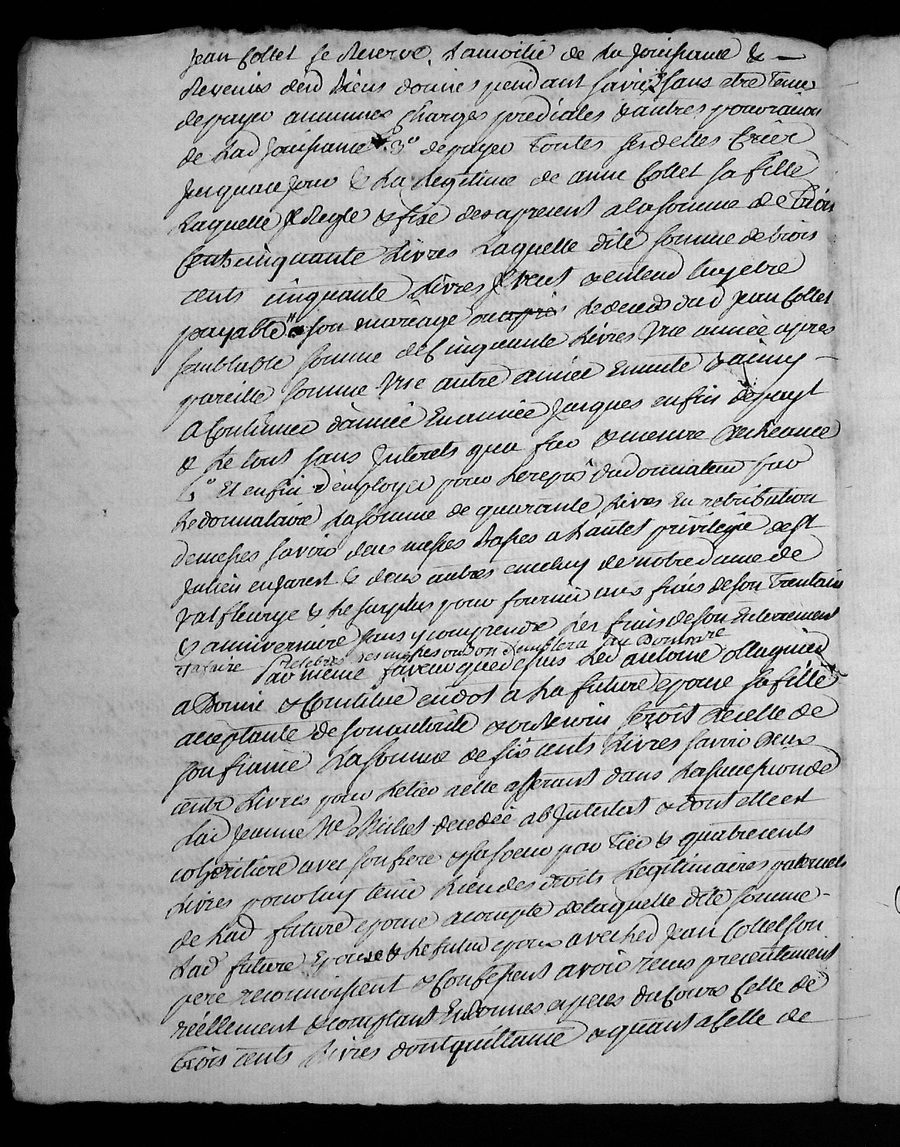 Jean Collet se Reserve, Lamoitié de La Jouissance &
Revenus desd Biens donnes pendant savie & sans etre tenu
de payer aucunnes charges prediales & autres pour raison
de Lad Jouissance 3° de payer toutes ses dettes Créer
Jusqua ce jour & La Legitime de anne Collet sa fille
Laquelle Il Regle & fixe des apresent a la somme de trois
Cents cinquante Livres Laquelle dite somme de trois
cents cinquante Livres Il veut & entend luy etre
payable a son mariage ou apres Le deces dud Jean Collet
semblable somme de Cinquante Livres Une année apres
pareille somme Une autre année Ensuite & ainsy
a Continuer dannée En année Jusques enfin depayt
& Le tout sans Interets qua fur & mesure decheance
Et enfin d'employer pour Le repos du donnateur par
Le donnataire La somme de quarante Livres En retribution
de messes savoir deux messes basses a Lautel privilegié de St
Julien en Jarest & deux autres en celuy de notre dame de
Valfleurye & Le surplus pour fournir aux frais de son trentain
& anniversaire sans y comprendre Les frais de son Enterrement
Par meme faveur que dessus Led antoine ollagnier
a Donné & Constitué en dot a La future epouse sa fille
acceptante de son autorité & au Besoin seroit de celle de
son fiancé La somme de six cents Livres savoir deux
cents Livres pour Le tiers a elle afferant dans La succession de
Lad Jeanne Me decedée ab Intestat & dont elle est
coheritiere avec son frere & sa soeur par tier & quatre cents
Livres pour luy tenir Lieu des droits Legitimaires paternels
de Lad future epouse acompte de laquelle dite somme
Lad future Epouse & Le futur epoux avec Led Jean Collet son
pere reconnoissent & Confessent avoir reçus presentement
réellement & comptant En bonnes especes du Cours Celle de
trois cents Livres dont quittance & quant a celle de